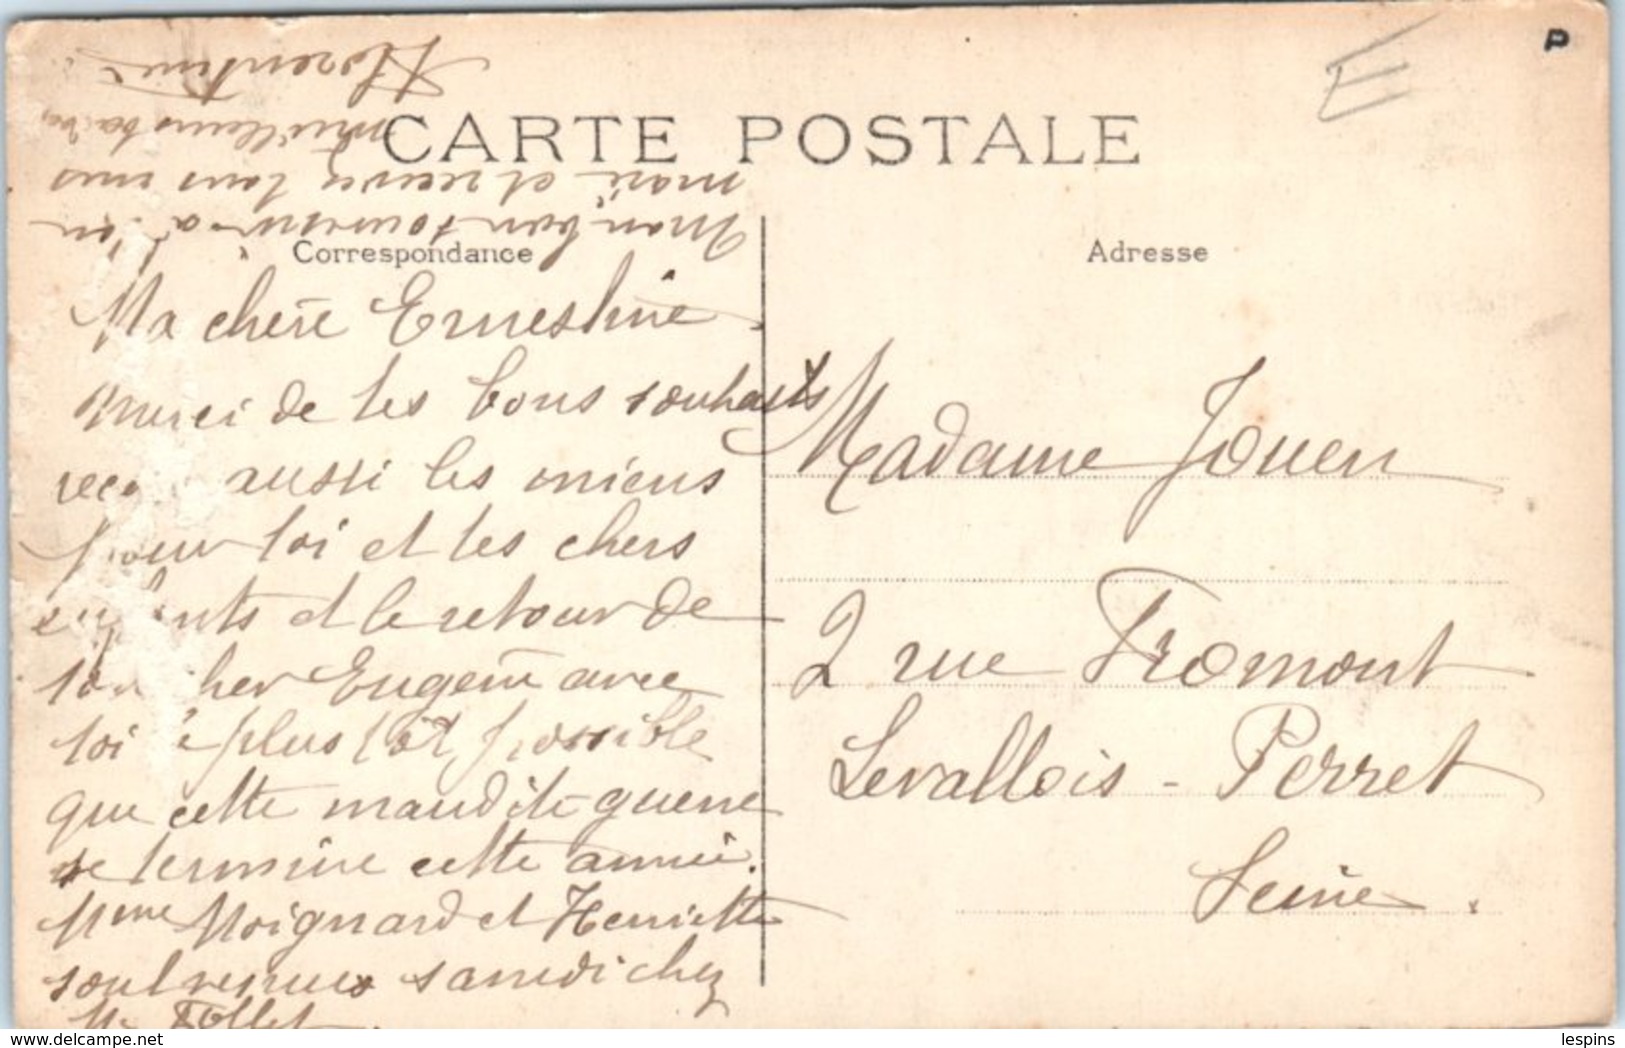 E
P
CARTE POSTALE
Correspondance
Adresse
Ma chère Ernestine
Merci de tes bons souhaits
reçois aussi les miens
pour toi et tes chers
enfants et le retour de
ton cher Eugène avec
toi le plus tôt possible
que cette maudite guerre
se termine cette année.
Mme Moignard et Henriette
sont venues samedi chez
Mr Follet
Mon bon souvenir à ton
mari et recevez tous mes
meilleurs baisers
Florentine
Madame Jouen
2 rue Fromont
Levallois - Perret
Seine.
www.delcampe.net
lespins